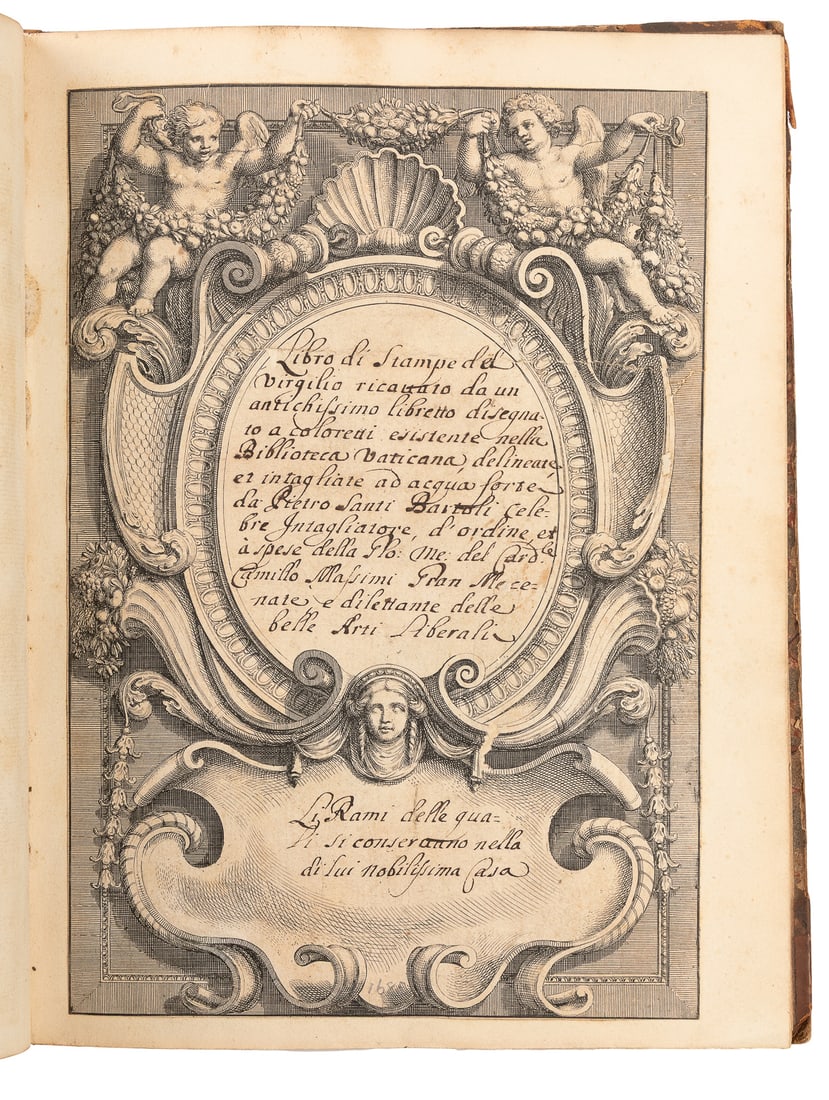 Libro di Stampe del
Virgilio ricavato da un
antichissimo libretto disegna-
to a coloretti esistente nella
Biblioteca Vaticana, delineate,
et intagliate ad acqua forte
da Pietro Santi Bartoli Cele-
bre Intagliatore, d'ordine, et
à spese della Glo: Me: del Card.le
Camillo Massimi Gran Mece-
nate e dilettante delle
belle Arti Liberali
Li Rami delle qua-
li si conservanno nella
di lui nobilissima Casa